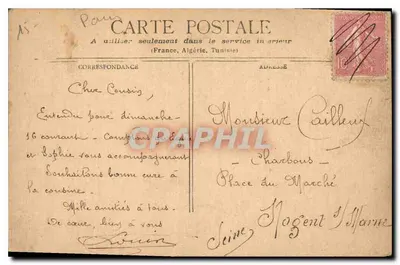 15
Paris
CARTE POSTALE
A utiliser seulement dans le service intérieur
(France, Algérie, Tunisie)
CORRESPONDANCE
ADRESSE
Cher Cousin,
Entendu pour dimanche
16 courant - Comptons
Sophie vous accompagneront
Souhaitons bonne cure à
la cousine.
Mille amitiés à tous.
De cœur, bien à vous
Monsieur Cailleux
Charbons
Place du Marché
Nogent s/ Marne
Seine
CPAPHIL